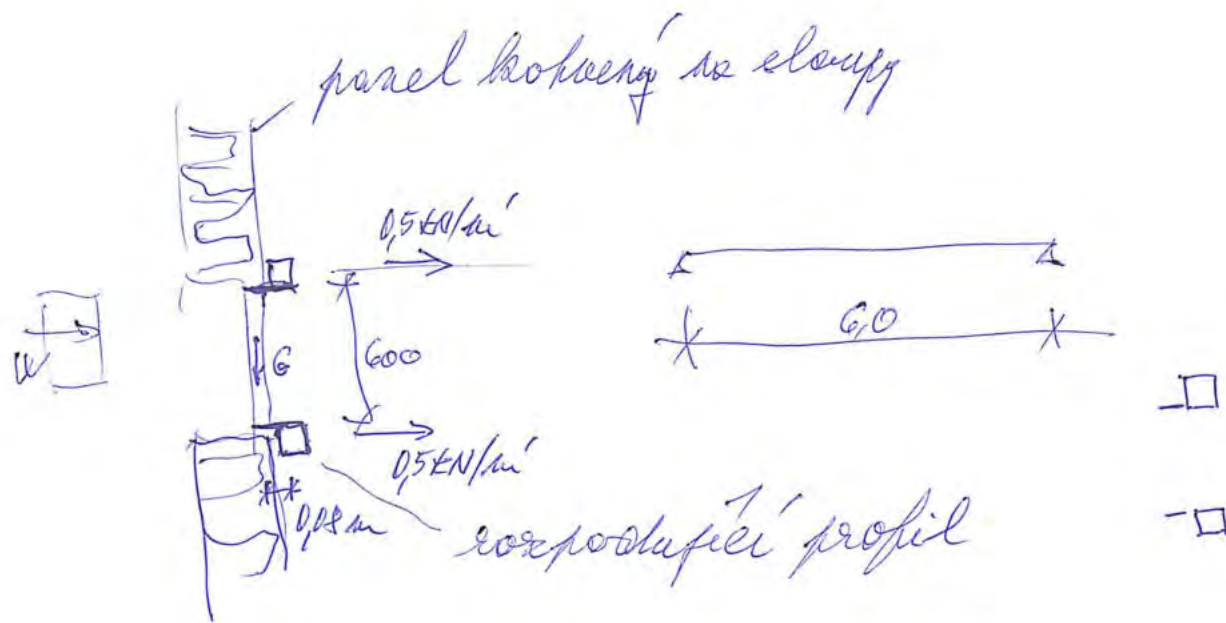 panel kotvený na sloupy
0,5 kN/m'
6,0
W
G
600
0,5 kN/m'
0,08 m
rozpodující profil